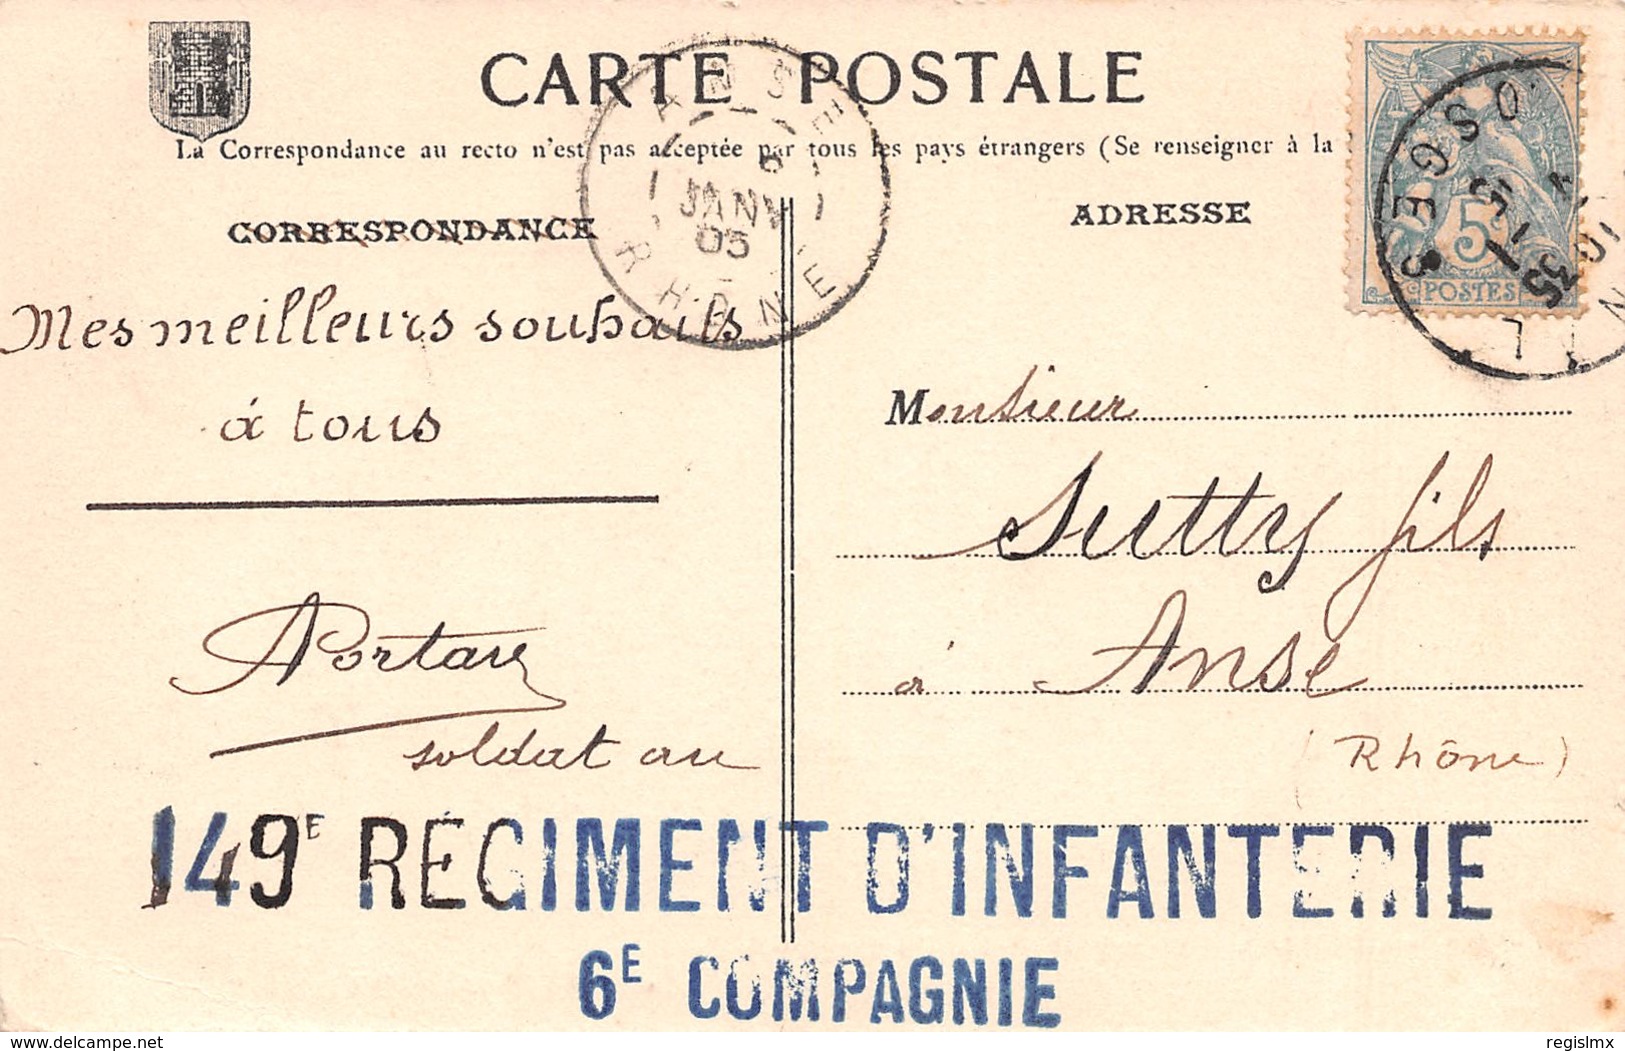 CARTE POSTALE
La Correspondance au recto n'est pas acceptée par tous les pays étrangers (Se renseigner à la
CORRESPONDANCE
ADRESSE
ANSE
6
JANV
05
RHONE
VOSGES
5
POSTES
Mes meilleurs souhaits
à tous
Monsieur
Sutty fils
à Anse
(Rhône)
soldat au
149E RÉGIMENT D'INFANTERIE
6E COMPAGNIE
delcampe.net
regislmx